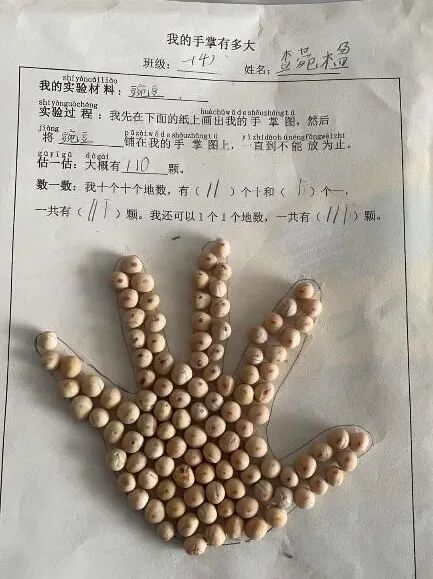 我的手掌有多大
班级： 一(4) 姓名：
shíyàncáiliào
我的实验材料：豌豆
shíyànguòchéng huàchūwǒdeshǒuzhǎngtú
实验过程：我先在下面的纸上画出我的手掌图，然后
jiāng pūzàiwǒdeshǒuzhǎngtú yìzhídàobùnéngfàngwéizhǐ
将 豌豆 铺在我的手掌图上，一直到不能放为止。
gūyìgū dàgài
估一估：大概有 110 颗。
数一数：我十个十个地数，有（11）个十和（ ）个一，
一共有（ ）颗。我还可以1个1个地数，一共有（ ）颗。